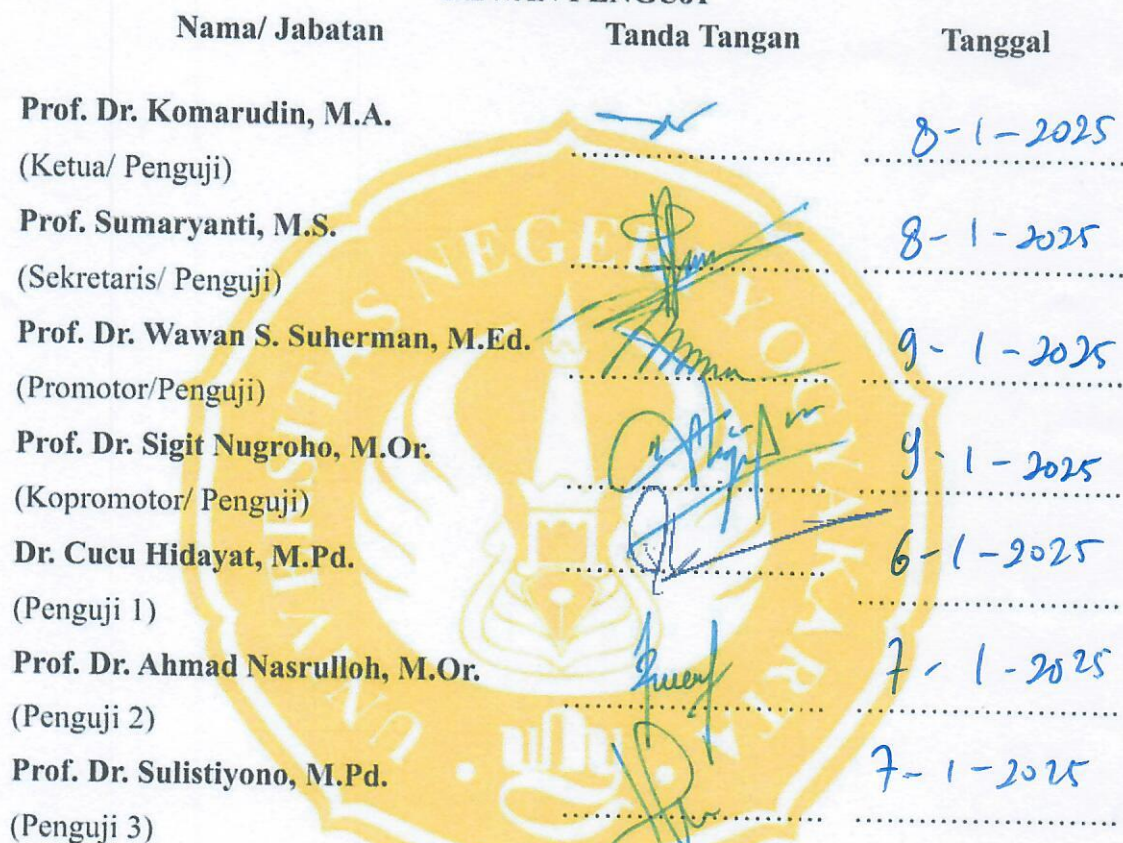 PENGUJI
Nama/ Jabatan Tanda Tangan Tanggal
Prof. Dr. Komarudin, M.A.
(Ketua/ Penguji) 8-1-2025
Prof. Sumaryanti, M.S.
(Sekretaris/ Penguji) 8-1-2025
Prof. Dr. Wawan S. Suherman, M.Ed.
(Promotor/Penguji) 9-1-2025
Prof. Dr. Sigit Nugroho, M.Or.
(Kopromotor/ Penguji) 9-1-2025
Dr. Cucu Hidayat, M.Pd.
(Penguji 1) 6-1-2025
Prof. Dr. Ahmad Nasrulloh, M.Or.
(Penguji 2) 7-1-2025
Prof. Dr. Sulistiyono, M.Pd.
(Penguji 3) 7-1-2025
UNIVERSITAS NEGERI YOGYAKARTA